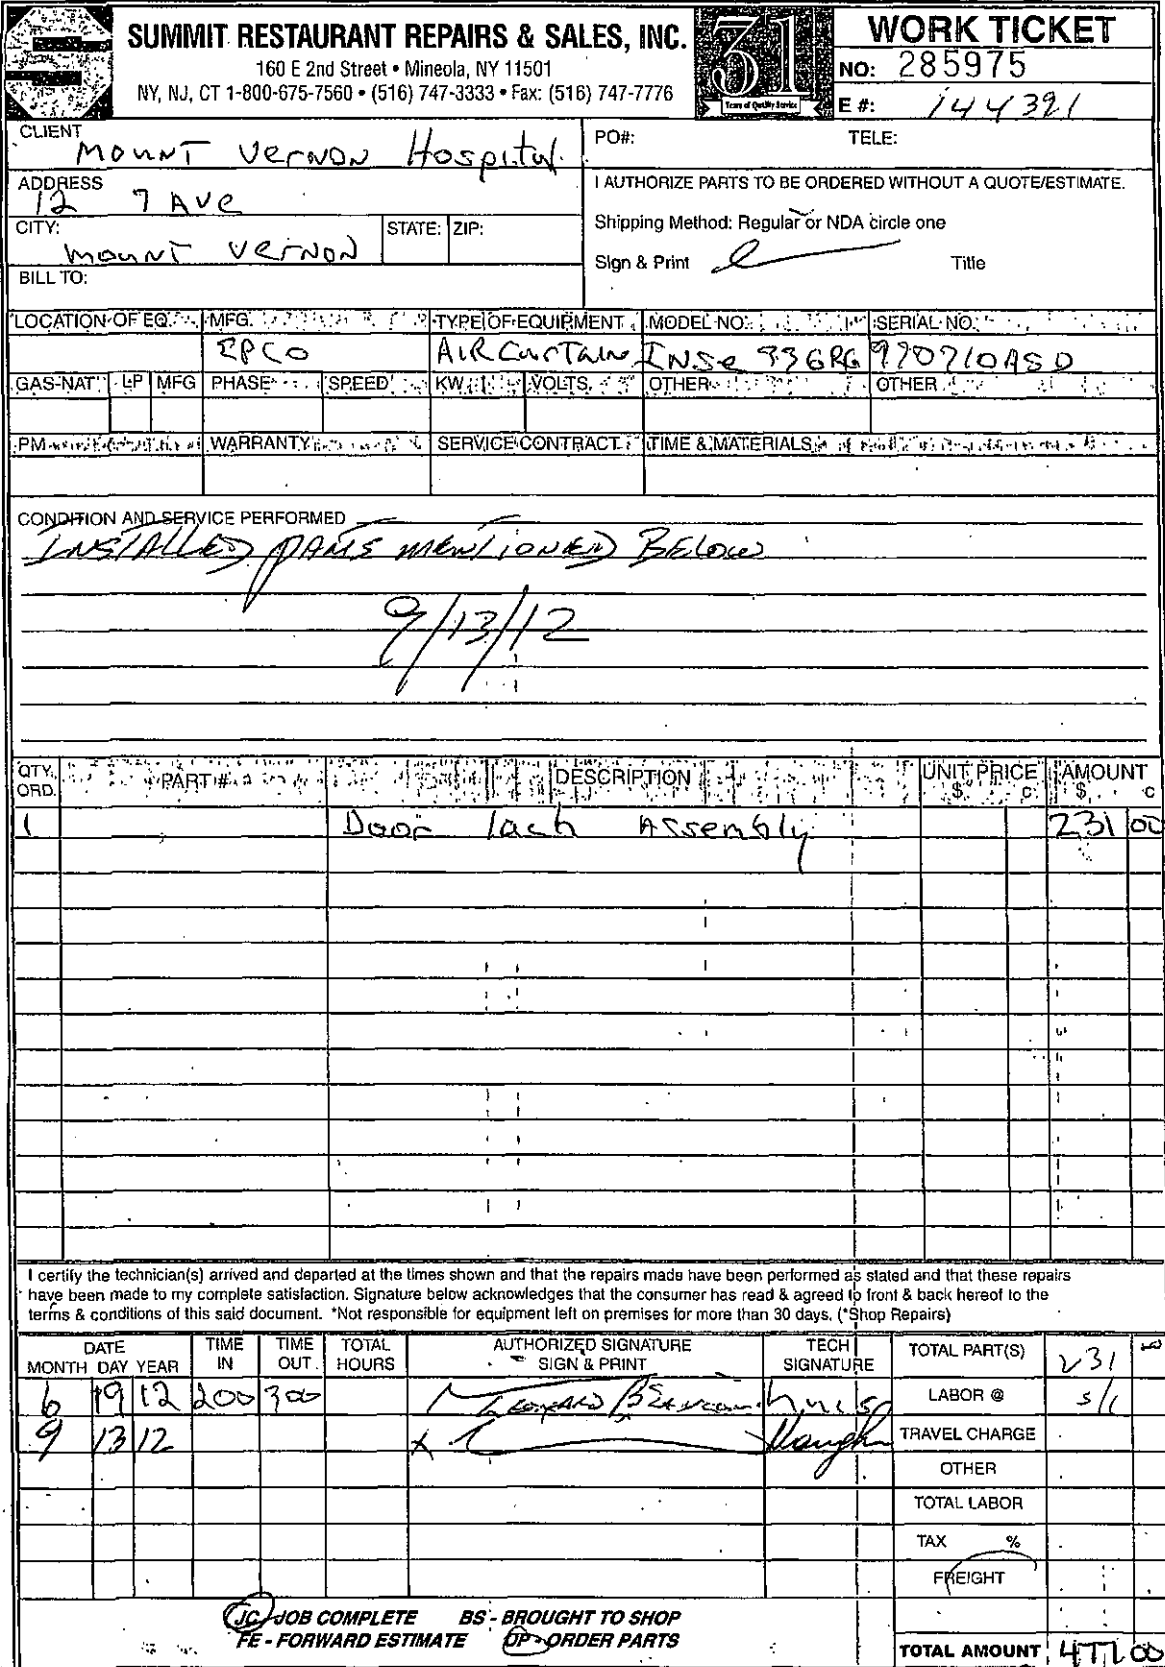 SUMMIT RESTAURANT REPAIRS & SALES, INC.
160 E 2nd Street • Mineola, NY 11501
NY, NJ, CT 1-800-675-7560 • (516) 747-3333 • Fax: (516) 747-7776
31
Years of Quality Service
WORK TICKET
NO: 285975
E #: 144391
CLIENT
MOUNT VERNON Hospital
PO#: TELE:
ADDRESS
12 7 AVE
I AUTHORIZE PARTS TO BE ORDERED WITHOUT A QUOTE/ESTIMATE.
CITY: STATE: ZIP:
MOUNT VERNON
Shipping Method: Regular or NDA circle one
Sign & Print Title
BILL TO:
LOCATION OF EQ. MFG. TYPE OF EQUIPMENT MODEL NO. SERIAL NO.
EPCO AIR CURTAIN INSE 336RG 970710ASD
GAS-NAT LP MFG PHASE SPEED KW VOLTS. OTHER OTHER
PM WARRANTY SERVICE CONTRACT TIME & MATERIALS
CONDITION AND SERVICE PERFORMED
INSTALLED PARTS MENTIONED BELOW
9/13/12
QTY. ORD. PART # DESCRIPTION UNIT PRICE $ C AMOUNT $ C
1 Door lach Assembly 231 00
I certify the technician(s) arrived and departed at the times shown and that the repairs made have been performed as stated and that these repairs
have been made to my complete satisfaction. Signature below acknowledges that the consumer has read & agreed to front & back hereof to the
terms & conditions of this said document. *Not responsible for equipment left on premises for more than 30 days. (*Shop Repairs)
DATE MONTH DAY YEAR TIME IN TIME OUT TOTAL HOURS AUTHORIZED SIGNATURE SIGN & PRINT TECH SIGNATURE
TOTAL PART(S) 231
6 19 12 200 300
LABOR @ S/C
9 13 12 X
TRAVEL CHARGE
OTHER
TOTAL LABOR
TAX %
FREIGHT
JC - JOB COMPLETE BS - BROUGHT TO SHOP
FE - FORWARD ESTIMATE OP - ORDER PARTS
TOTAL AMOUNT